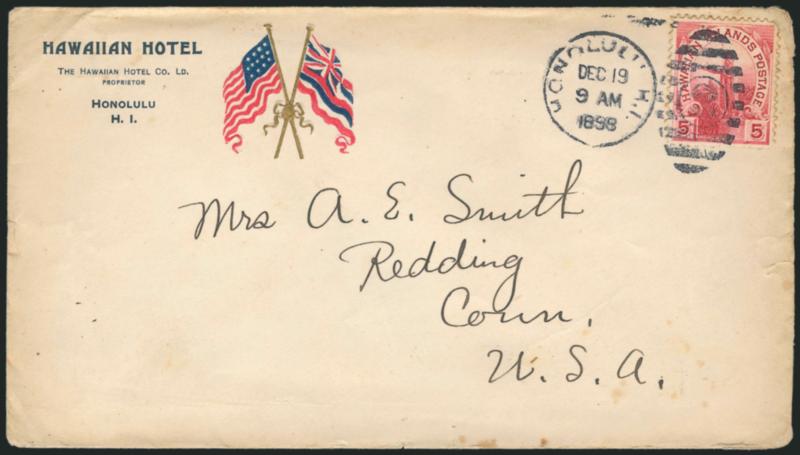 HAWAIIAN HOTEL
THE HAWAIIAN HOTEL CO. LD.
PROPRIETOR
HONOLULU
H. I.
HONOLULU H.I.
DEC 19
9 AM
1898
HAWAIIAN ISLANDS POSTAGE
5 5
Mrs A. E. Smith
Redding
Conn.
U. S. A.